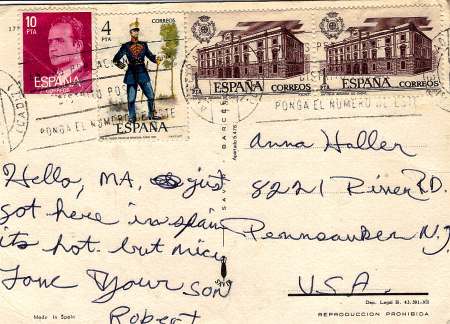 10
PTA
ESPAÑA
CORREOS
4
PTA
CORREOS
ESPAÑA
ESPAÑA
CORREOS
ESPAÑA
CORREOS
PONGA EL NUMERO DE ESTE
PONGA EL NUMERO DE ESTE
Hello, MA, just
got here in spain
its hot. but nice
Love Your son
Robert
Made in Spain
Anna Haller
8221 River RD.
Pennsauken N.J
U.S.A.
Dep. Legal B. 43.591-XII
REPRODUCCION PROHIBIDA